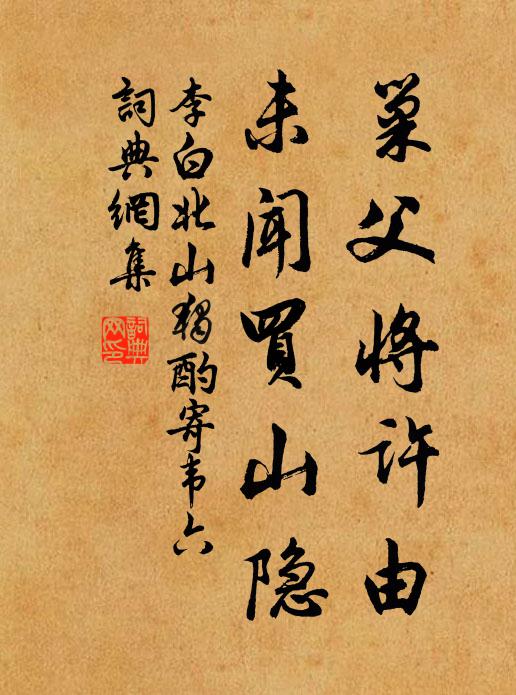 巢父将许由
未闻買山隐
李白北山獨酌寄韦六
詞典網集
詞典